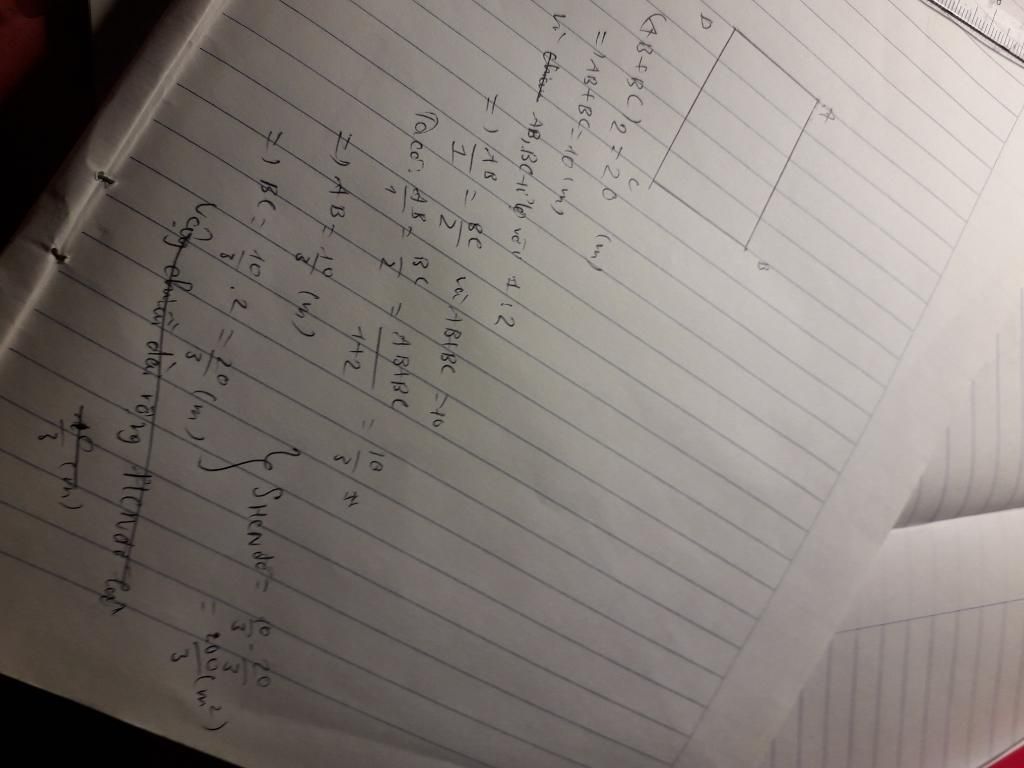 A
B
D
C
(AB+BC)2=20 (m)
=) AB+BC=10(m)
Vì AB, BC tỉ lệ với 1;2
=) AB/1 = BC/2 và AB+BC=10
Ta có: AB/1 = BC/2 = AB+BC/1+2 = 10/3
=) AB = 10/3 (m)
=) BC = 10/3 . 2 = 20/3 (m)
} SHCNĐó = 10/3 . 20/3
= 200/3 (m²)
Vậy chiều rộng HCN
10/3 (m)